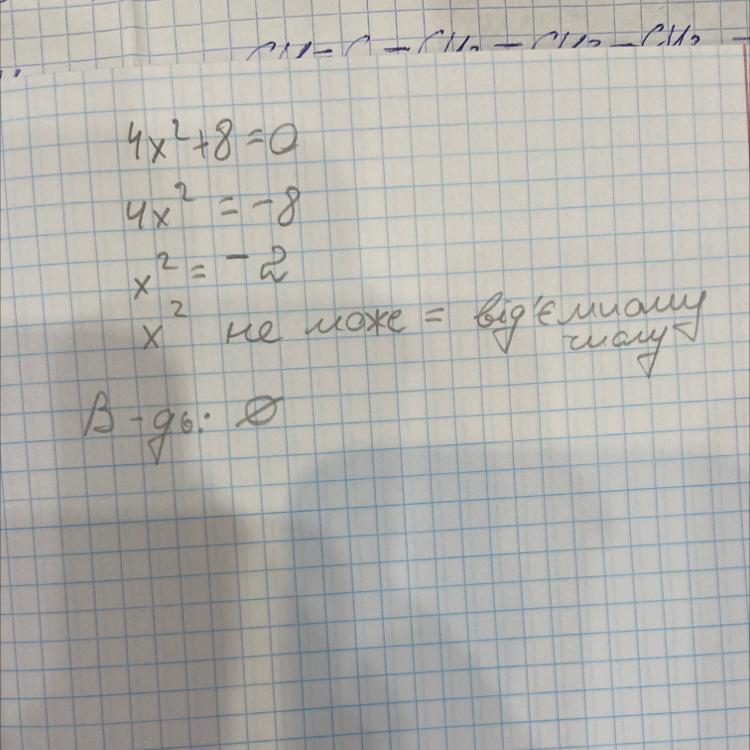 CH-C-CH₂-CH₂-CH₂-
4x²+8=0
4x² = -8
x² = -2
x² не може = від'ємному
числу
В-дь: Ø